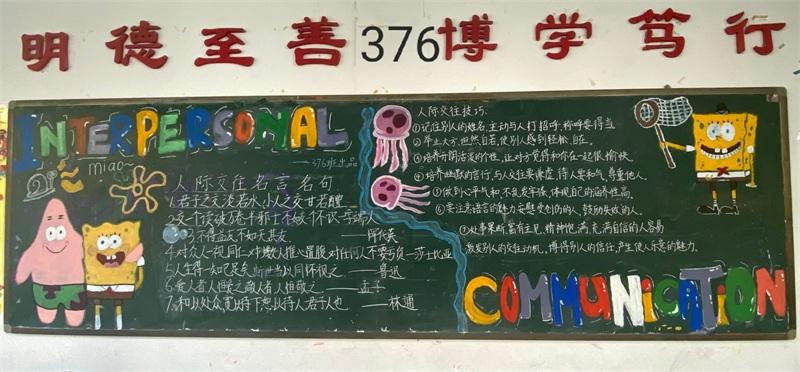 明德至善376博学笃行
INTERPERSONAL
miao~
376班出品
人际交往名言名句
1.君子之交淡若水,小人之交甘若醴
3.不得益友不如无其友
5.人生得一知己足矣斯世当以同怀视之——鲁迅
6.爱人者人恒爱之敬人者人恒敬之——孟子
7.和以处众宽以待下恕以待人君子人也——林逋
人际交往技巧.
①记住别人的姓名,主动与人打招呼,称呼要得当
②举止大方,坦然自若,使别人感到轻松,自在.
③培养开朗活泼的个性,让对方觉得和你在一起很愉快
④培养幽默的言行,与人交往要谦虚,待人要和气,尊重他人.
⑤做到心平气和,不乱发牢骚,体现自己的涵养性高.
⑥要注意语言的魅力安慰受创伤的人,鼓励失败的人.
⑦处事果断,富有主见,精神饱满,充满自信的人容易
激发别人的交往动机,博得别人的信任,产生使人乐意的魅力.
COMMUNICATION